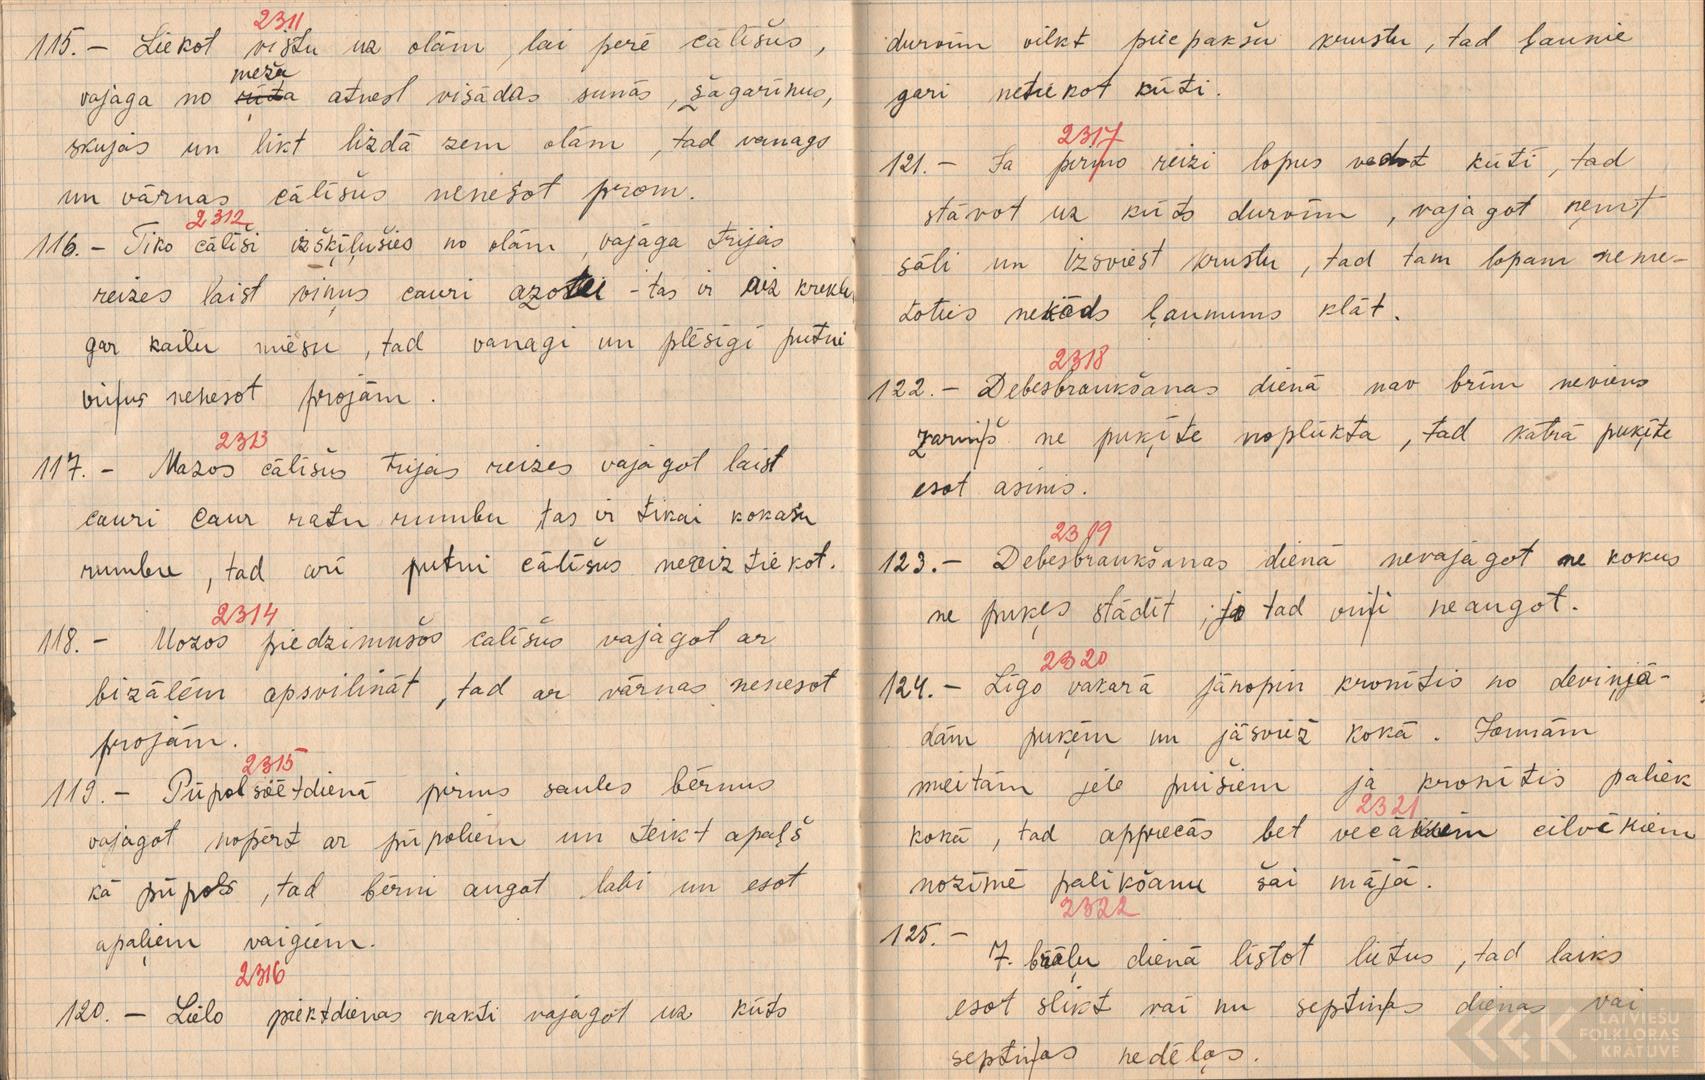 2311
115. - Liekot vistu uz olām, lai perē cālīšus,
meža
vajaga no ņiža atnest visādas sunās, šagariņus,
skujas un likt lizdā zem olām, tad vanags
un vārnas cālīšus nenešot prom.
2312
116. - Tiko cālīši izšķiļušies no olām, vajaga trijās
reizes laist viņus cauri azotei - tas ir aiz krekla,
gar kailu miesu, tad vanagi un plēsīgi putni
viņus nenesot projām.
2313
117. - Mazos cālīšus trijās reizes vajagot laist
cauri caur ratu rumbu tas ir tikai kokašu
rumbu, tad arī putni cālīšus neaiztiekot.
2314
118. - Mazos piedzimušos calīšus vajagot ar
bizālēm apsvilināt, tad ar vārnas nenesot
projām.
2315
119. - Pūpolsvētdienā pirms saules bērnus
vajagot nopērt ar pūpoliem un teikt apaļš
kā pūpols, tad bērni augot labi un esot
apaļiem vaigiem.
2316
120. - Lielo piektdienas nakti vajagot uz kūts
durvīm vilkt piepakšu krustu, tad ļaunie
gari netiekot kūtī.
2317
121. - Ja pirmo reizi lopus vedot kūtī, tad
stāvot uz kūts durvīm, vajagot ņemt
sāli un izsviest krustu, tad tam lopam neme-
toties nekāds ļaunums klāt.
2318
122. - Debesbraukšanas dienā nav brīm neviens
zariņš ne puķīte noplūkta, tad katrā puķīte
esot asinis.
2319
123. - Debesbraukšanas dienā nevajagot ne kokus
ne puķes stādīt, jo tad viņi neaugot.
2320
124. - Līgo vakarā jānopin kronītis no deviņjā-
dām puķēm un jāsviež kokā. Jaunām
meitām jele puišiem ja kronītis paliek
2321
kokā, tad apprecās bet vecakiem cilvēkiem
nozīmē palikšanu šai mājā.
2322
125. -
7. brāļu dienā līstot lietus, tad laiks
esot slikt vai nu septiņas dienas vai
septiņas nedēļas.
LATVIEŠU
FOLKLORAS
KRĀTUVE